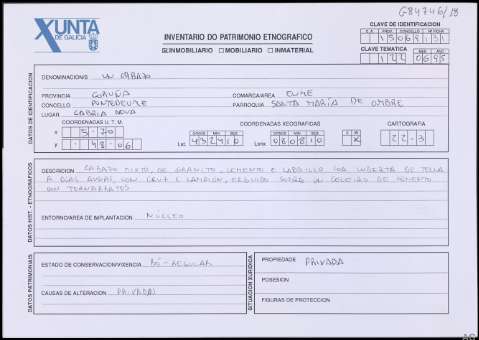 G84746/18
XUNTA
DE GALICIA
INVENTARIO DO PATRIMONIO ETNOGRAFICO
INMOBILIARIO MOBILIARIO INMATERIAL
CLAVE DE IDENTIFICACION
PROV. CONCELLO Nº FICHA
15069131
CLAVE TEMATICA
MES ANO
0695
DATOS DE IDENTIFICACION
DENOMINACIONS UN CABAZO
PROVINCIA CORUÑA
COMARCA/AREA EUME
CONCELLO PONTEDEUME
PARROQUIA SANTA MARÍA DE OMBRE
LUGAR
COORDENADAS U.T.M.
COORDENADAS XEOGRAFICAS
CARTOGRAFIA
X 5-70
GRADOS MIN. SEG. GRADOS MIN. SEG.
Y 48-06
Lat. 432410 Lonx. 080810
22-3
DATOS HIST.- ETNOGRAFICOS
DESCRICION CABAZO MIXTO, DE GRANITO, CEMENTO E LADRILLO CON CUBERTA DE TELLA
A DÚAS AUGAS, CON CRUZ E LAMPION, ERGUIDO SOBRE UN CELEIRO DE CEMENTO
CON TORNARRATOS
ENTORNO/AREA DE IMPLANTACION NUCLEO
DATOS PATRIMONIAIS
ESTADO DE CONSERVACION/VIXENCIA BO - REGULAR
CAUSAS DE ALTERACION PRIVADAS
SITUACION XURIDICA
PROPIEDADE PRIVADA
POSESION
FIGURAS DE PROTECCION